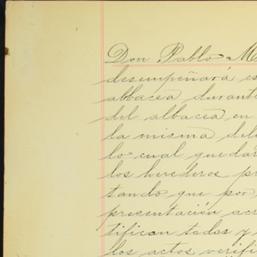 Don Pablo M
desempeñará es
albacea durante
del albacea en
la misma del
lo cual quedar
los herederos pr
tando que por
presentación acr
tifican todas y
los actos verifi